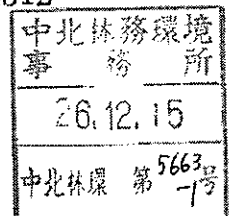 中北林務環境
事務所
26.12.15
中北林環 第5663号
-1